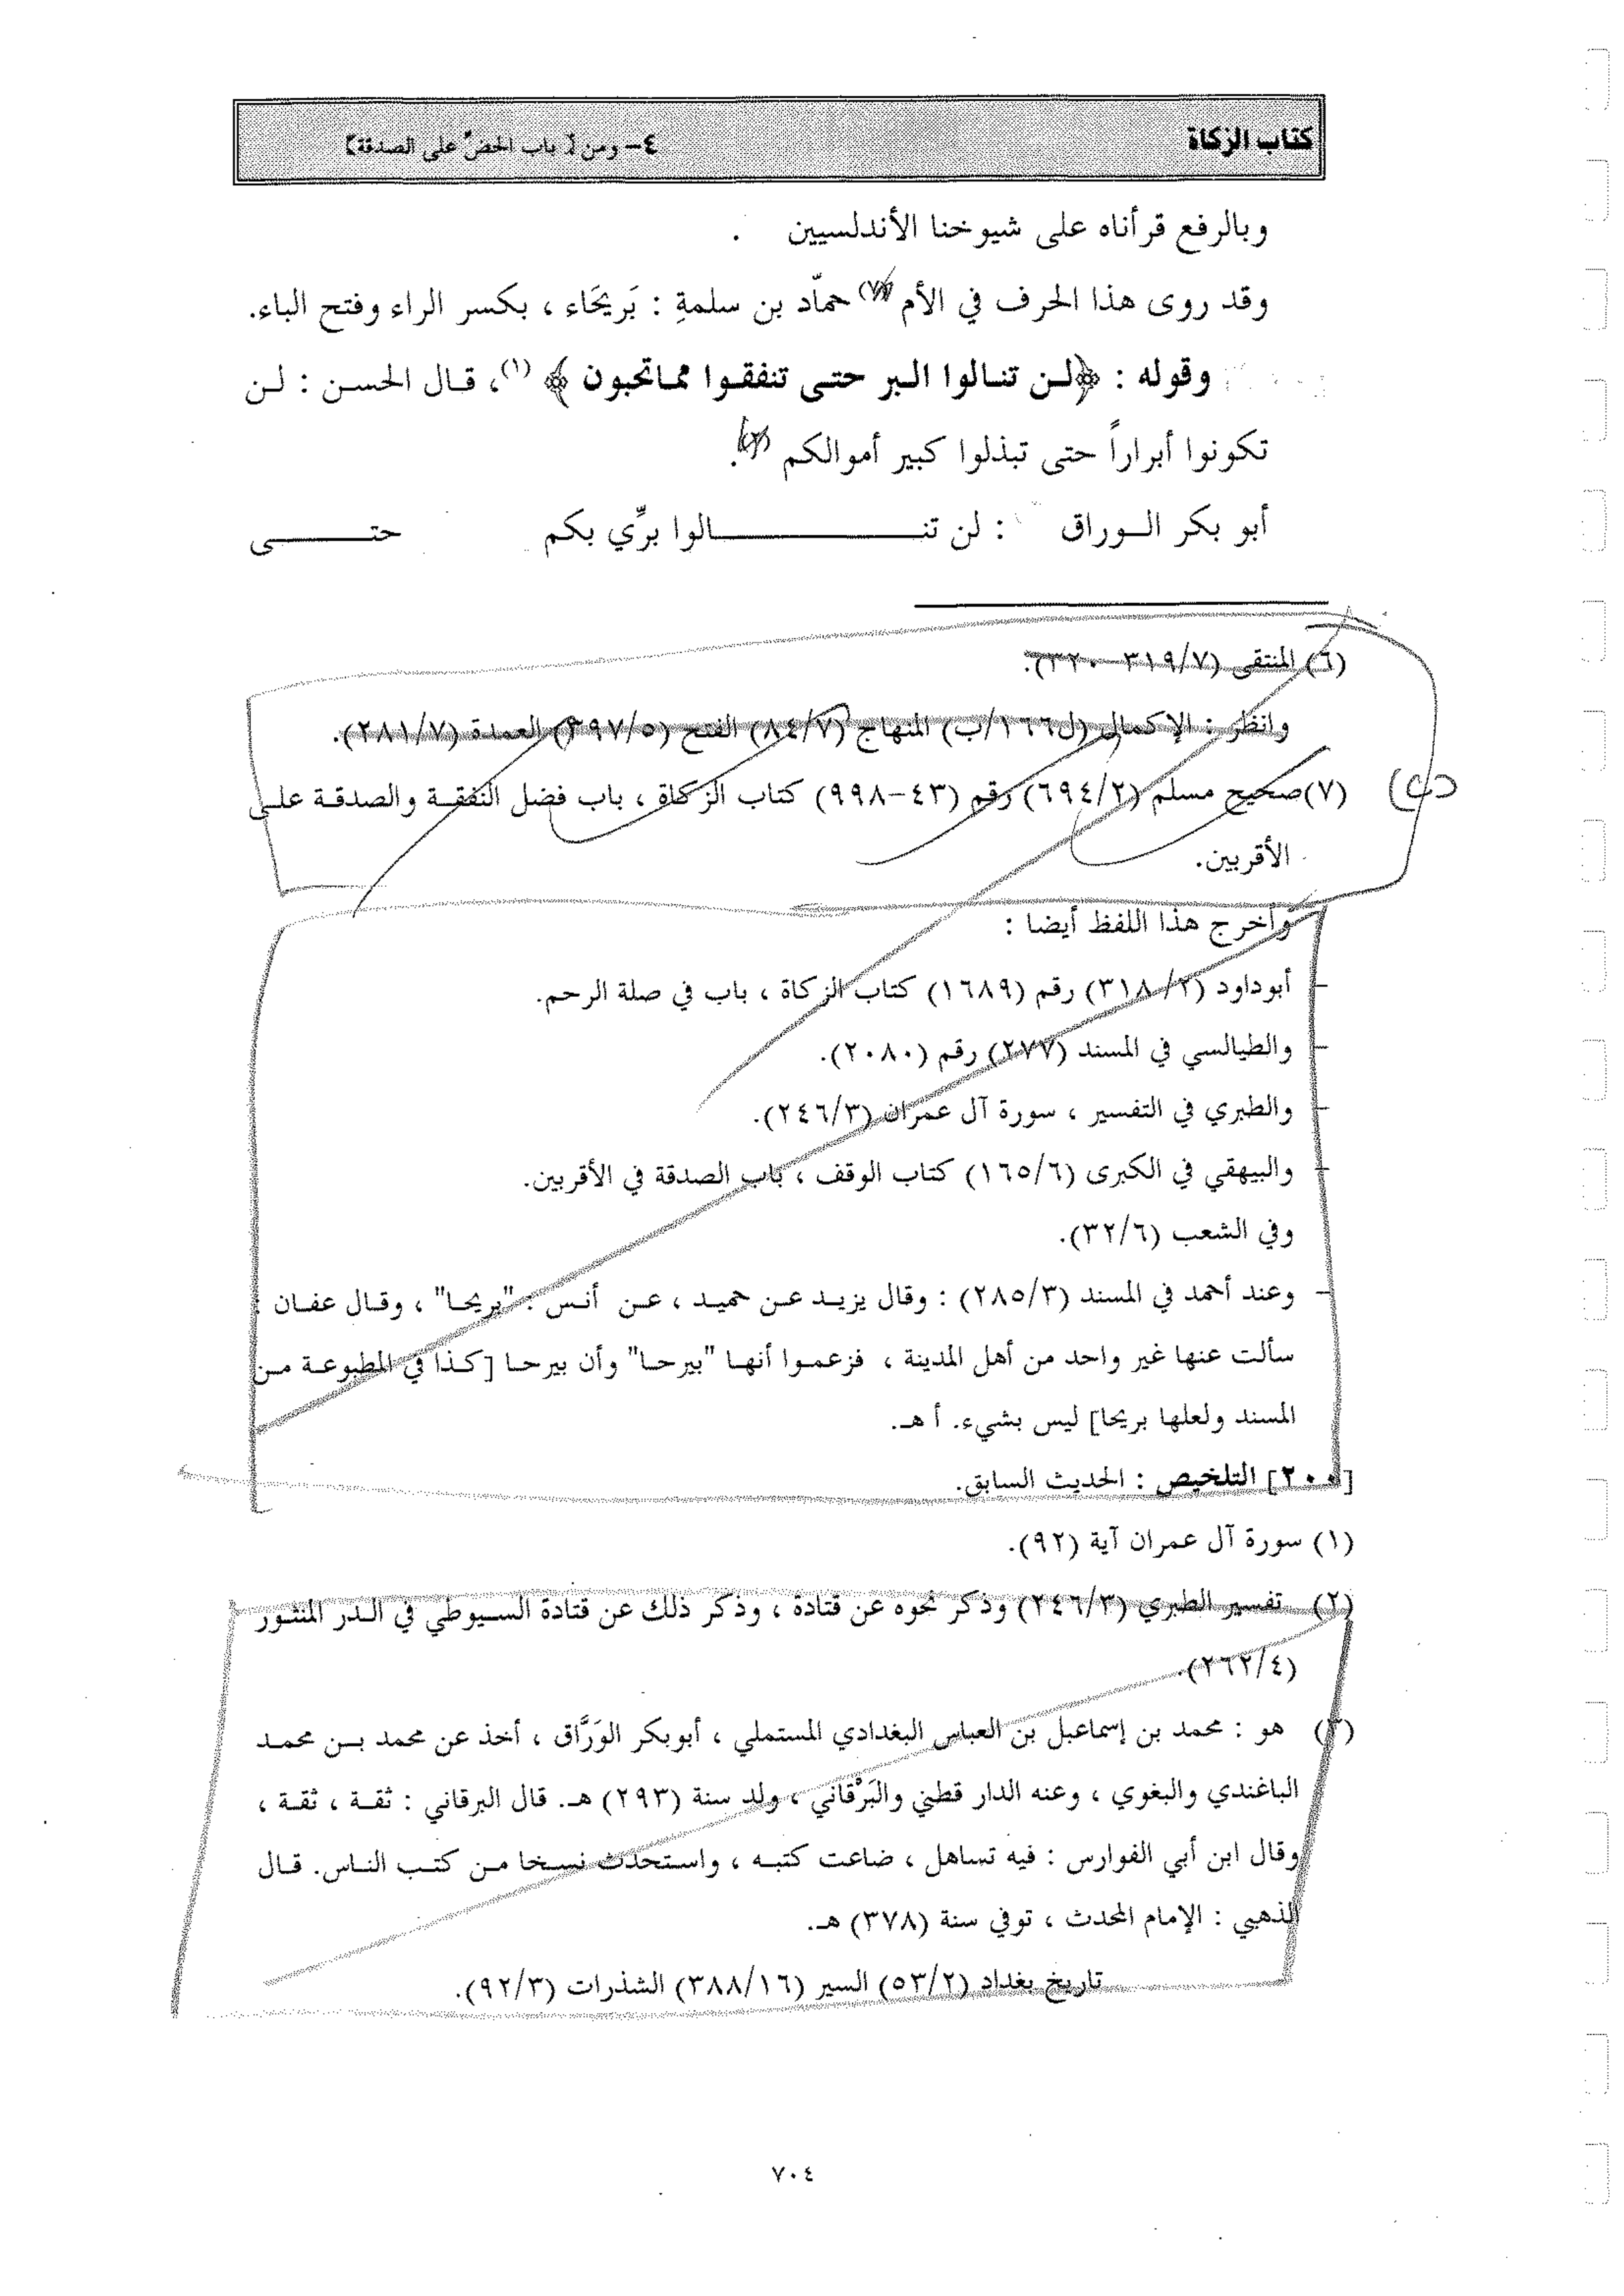 كتاب الزكاة
٤- ومن [ باب الحضِّ على الصدقة]
وبالرفع قرأناه على شيوخنا الأندلسيين .
وقد روى هذا الحرف في الأم (٧) حمّاد بن سلمةِ : بَريحَاء ، بكسر الراء وفتح الباء.
وقوله : ﴿لـن تنـالوا الـبر حتـى تنفقـوا ممـاتحبون ﴾ (١)، قـال الحسـن : لـن
تكونوا أبراراً حتى تبذلوا كبير أموالكم (٢).
أبو بكر الـوراق : لن تنـــالوا برِّي بكم حتـــى
(٦) المنتقى (٣١٩/٧-٣٢٠).
وانظر : الإكمال (ل١٦٦/ب) المنهاج (٨٤/٧) الفتح (٣٩٧/٥) العمدة (٢٨١/٧).
(٧)صحيح مسلم (٦٩٤/٢) رقم (٤٣-٩٩٨) كتاب الزكاة ، باب فضل النفقـة والصدقـة علـى
الأقربين.
وأخرج هذا اللفظ أيضا :
– أبوداود (٣١٨/٢) رقم (١٦٨٩) كتاب الزكاة ، باب في صلة الرحم.
– والطيالسي في المسند (٢٧٧) رقم (٢٠٨٠).
– والطبري في التفسير ، سورة آل عمران (٢٤٦/٣).
– والبيهقي في الكبرى (١٦٥/٦) كتاب الوقف ، باب الصدقة في الأقربين.
وفي الشعب (٣٢/٦).
– وعند أحمد في المسند (٢٨٥/٣) : وقال يزيـد عـن حميـد ، عـن أنـس : "بريحـا" ، وقـال عفـان :
سألت عنها غير واحد من أهل المدينة ، فزعمـوا أنهـا "بيرحـا" وأن بيرحـا [كـذا في المطبوعـة مـن
المسند ولعلها بريحا] ليس بشيء. أ هـ.
[٢٠٠] التلخيص : الحديث السابق.
(١) سورة آل عمران آية (٩٢).
(٢) تفسير الطبري (٢٤٦/٣) وذكر نحوه عن قتادة ، وذكر ذلك عن قتادة السـيوطي في الـدر المنثـور
(٢٦٢/٤).
(٣) هو : محمد بن إسماعيل بن العباس البغدادي المستملي ، أبوبكر الوَرَّاق ، أخذ عن محمد بـن محمـد
الباغندي والبغوي ، وعنه الدار قطني والبَرْقاني ، ولد سنة (٢٩٣) هـ. قال البرقاني : ثقـة ، ثقـة ،
وقال ابن أبي الفوارس : فيه تساهل ، ضاعت كتبـه ، واسـتحدث نسـخا مـن كتـب النـاس. قـال
الذهبي : الإمام المحدث ، توفي سنة (٣٧٨) هـ.
تاريخ بغداد (٥٣/٢) السير (٣٨٨/١٦) الشذرات (٩٢/٣).
٧٠٤